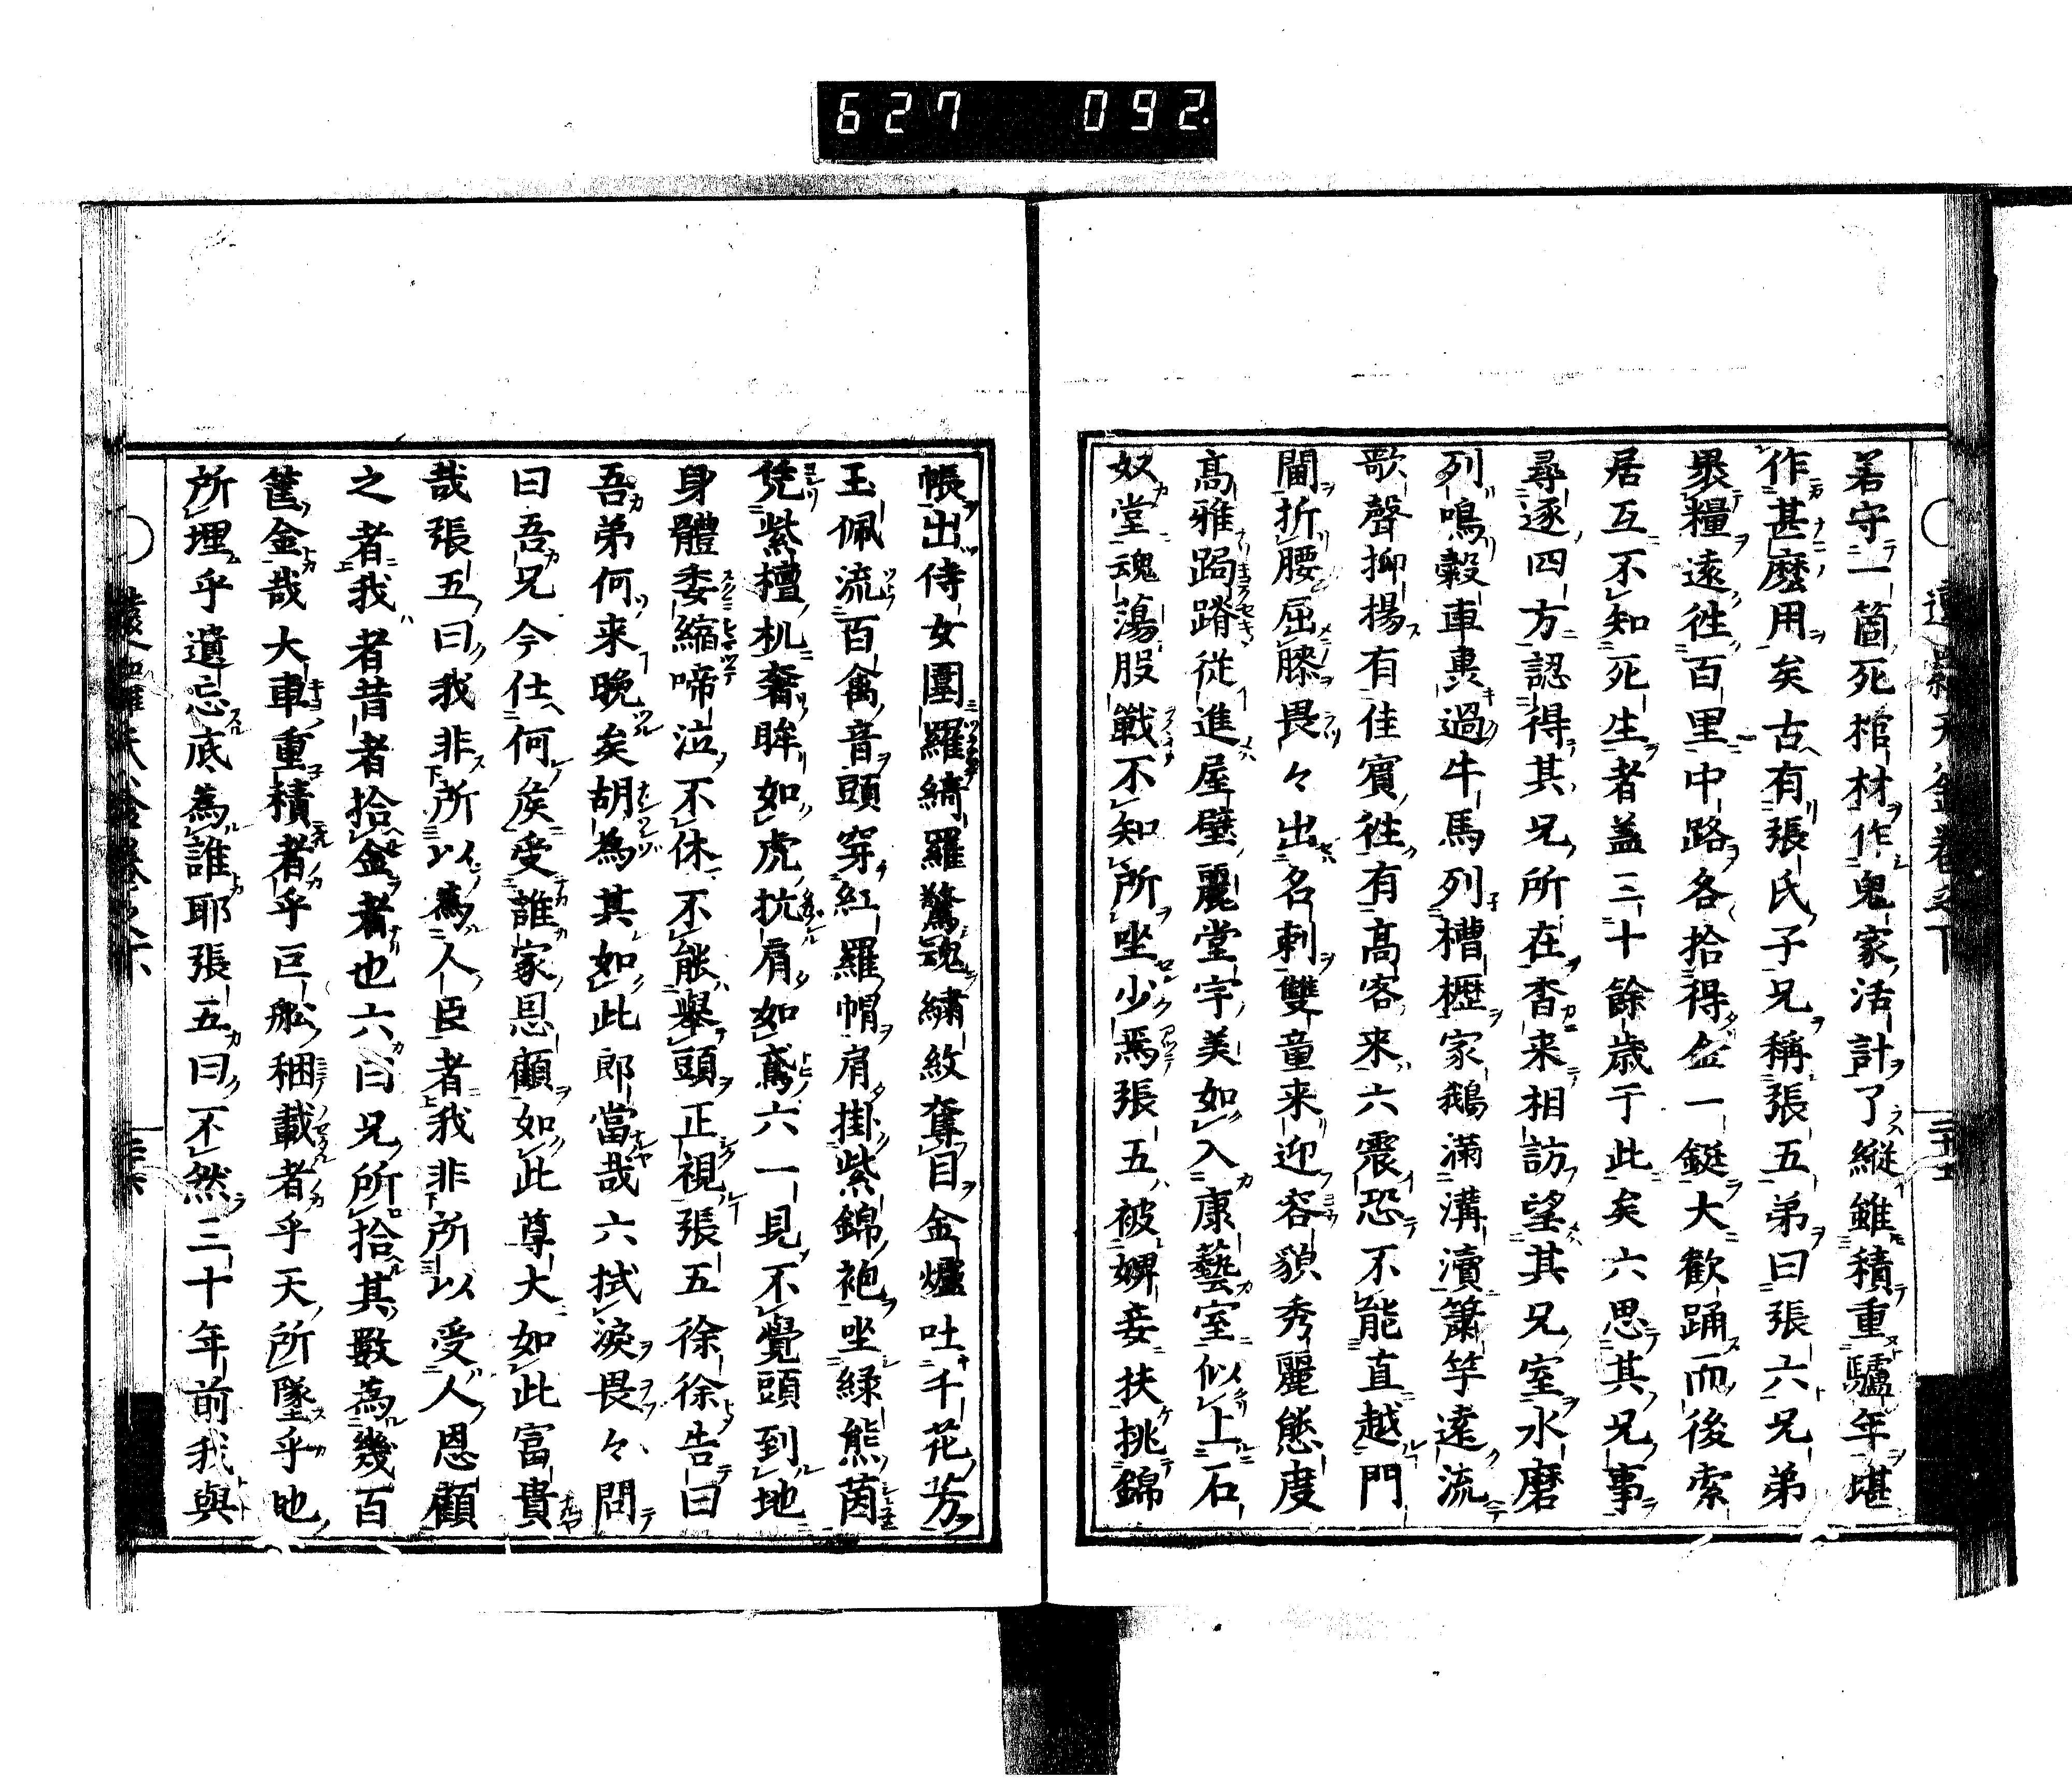 627 092.
若守一箇死棺材作鬼家活計了縱雖積重驢年堪
作甚麼用矣古有張氏子兄稱張五弟曰張六兄弟
褁糧遠徃百里中路各拾得金一鋌大歡踊而後索
居互不知死生者盖三十餘歳于此矣六思其兄事
尋逐四方認得其兄所在杳来相訪望其兄室水磨
列鳴轂車裏過牛馬列槽櫪家鵝滿溝瀆簫竽遠流
歌聲抑揚有佳賓徃有高客来六震恐不能直越門
閫折腰屈膝畏々出名刺雙童来迎容貌秀麗態度
高雅跼蹐從進屋壁麗堂宇美如入康藝室似上石
奴堂魂蕩股戰不知所坐少焉張五被婢妾扶挑錦
帳出侍女圍羅綺羅驚魂繡紋奪目金爐吐千花芳
玉佩流百禽音頭穿紅羅帽肩掛紫錦袍坐緑熊茵
凭紫檀机奢眸如虎抗肩如鳶六一見不覺頭到地
身體委縮啼泣不休不能擧頭正視張五徐徐告曰
吾弟何来晩矣胡為其如此郎當哉六拭淚畏々問
曰吾兄今仕何矦受誰家恩顧如此尊大如此富貴
哉張五曰我非所以為人臣者我非所以受人恩顧
之者我者昔者拾金者也六曰兄所拾其數為幾百
筐金哉大車重積者乎巨舩稇載者乎天所墜乎地
所埋乎遺忘底為誰耶張五曰不然三十年前我與